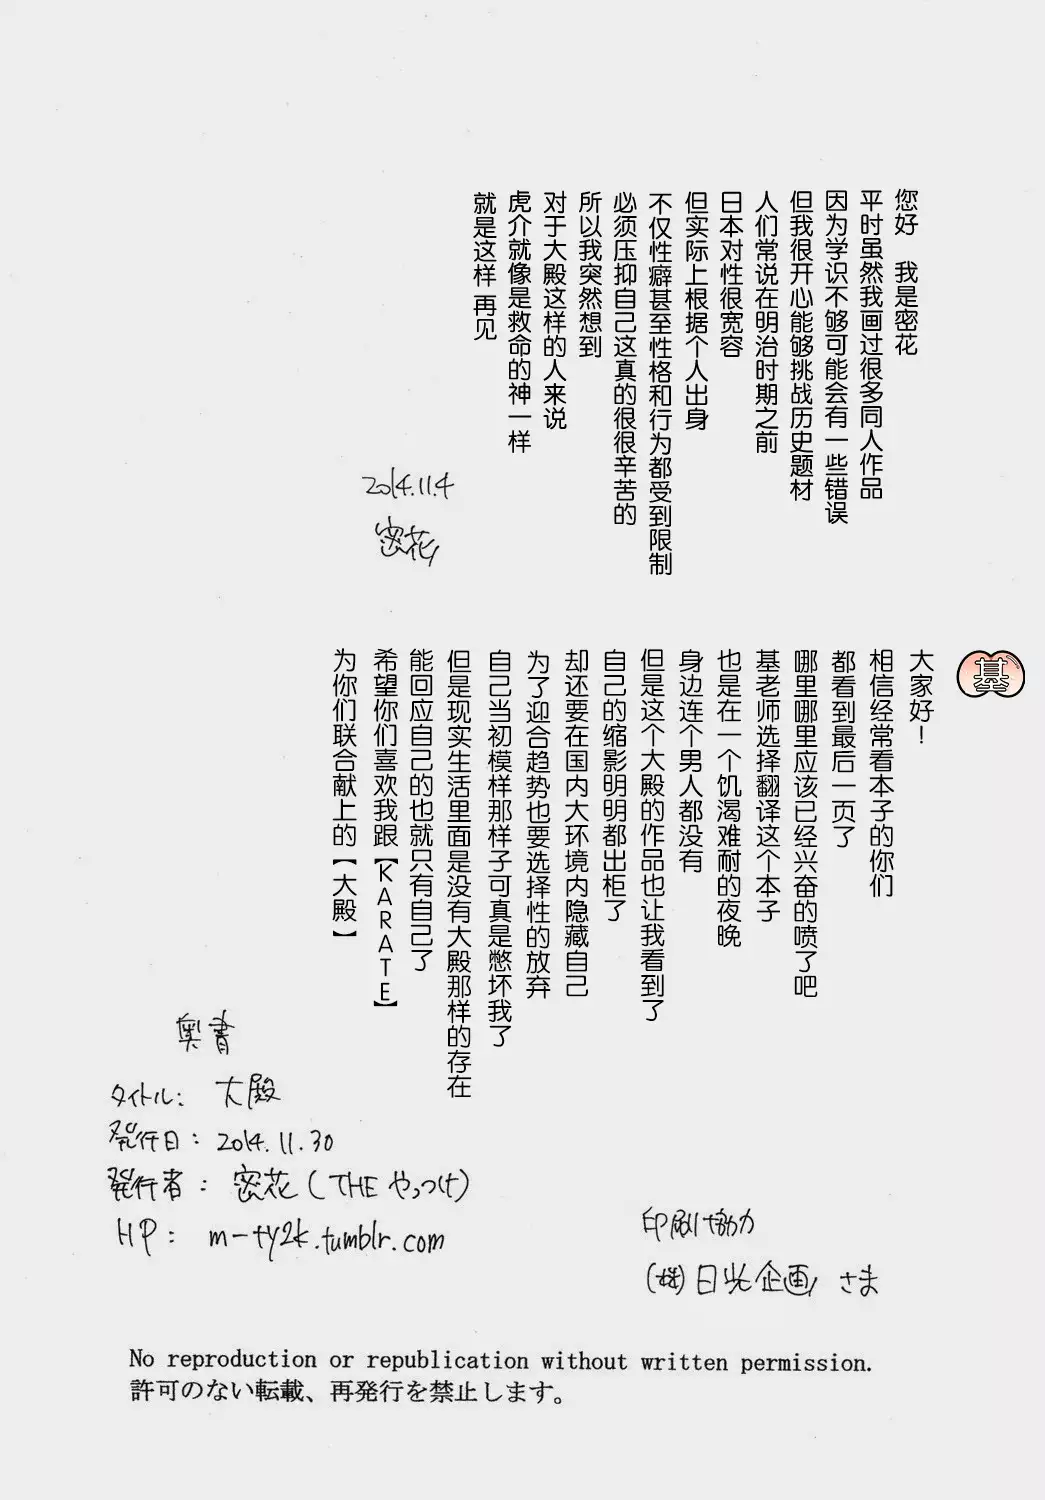 您好　我是密花
平时虽然我画过很多同人作品
因为学识不够可能会有一些错误
但我很开心能够挑战历史题材
人们常说在明治时期之前
日本对性很宽容
但实际上根据个人出身
不仅性癖甚至性格和行为都受到限制
必须压抑自己这真的很很辛苦的
所以我突然想到
对于大殿这样的人来说
虎介就像是救命的神一样
就是这样 再见
2014.11.4
密花
基
大家好！
相信经常看本子的你们
都看到最后一页了
哪里哪里应该已经兴奋的喷了吧
基老师选择翻译这个本子
也是在一个饥渴难耐的夜晚
身边连个男人都没有
但是这个大殿的作品也让我看到了
自己的缩影明明都出柜了
却还要在国内大环境内隐藏自己
为了迎合趋势也要选择性的放弃
自己当初模样那样子可真是憋坏我了
但是现实生活里面是没有大殿那样的存在
能回应自己的也就只有自己了
希望你们喜欢我跟【KARATE】
为你们联合献上的【大殿】
奥書
タイトル: 大殿
発行日: 2014.11.30
発行者: 密花(THEやっつけ)
HP: m-ty2k.tumblr.com
印刷協力
(株)日光企画 さま
No reproduction or republication without written permission.
許可のない転載、再発行を禁止します。